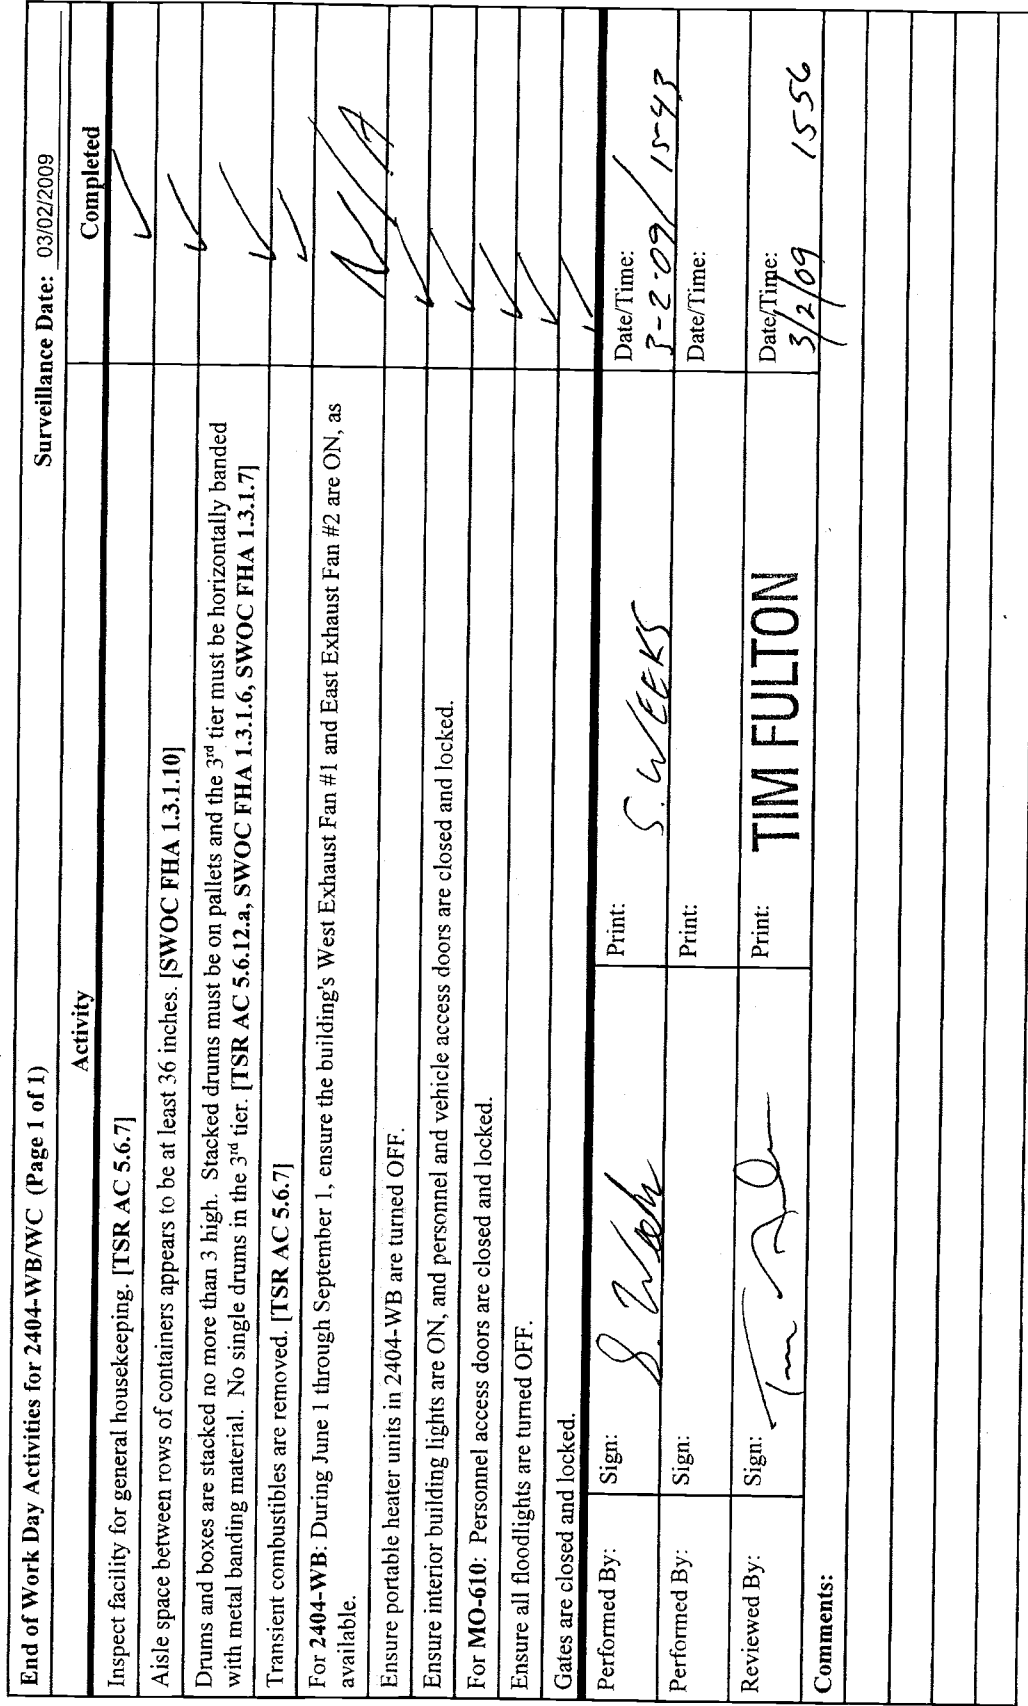 End of Work Day Activities for 2404-WB/WC (Page 1 of 1) Surveillance Date: 03/02/2009
Activity Completed
Inspect facility for general housekeeping. [TSR AC 5.6.7] ✓
Aisle space between rows of containers appears to be at least 36 inches. [SWOC FHA 1.3.1.10] ✓
Drums and boxes are stacked no more than 3 high. Stacked drums must be on pallets and the 3rd tier must be horizontally banded
with metal banding material. No single drums in the 3rd tier. [TSR AC 5.6.12.a, SWOC FHA 1.3.1.6, SWOC FHA 1.3.1.7] ✓
Transient combustibles are removed. [TSR AC 5.6.7] ✓
For 2404-WB: During June 1 through September 1, ensure the building's West Exhaust Fan #1 and East Exhaust Fan #2 are ON, as
available. N/A
Ensure portable heater units in 2404-WB are turned OFF. ✓
Ensure interior building lights are ON, and personnel and vehicle access doors are closed and locked. ✓
For MO-610: Personnel access doors are closed and locked. ✓
Ensure all floodlights are turned OFF. ✓
Gates are closed and locked. ✓
Performed By: Sign: Print: S. WEEKS Date/Time: 3-2-09/1543
Performed By: Sign: Print: Date/Time:
Reviewed By: Sign: Print: TIM FULTON Date/Time: 3/2/09 1556
Comments: